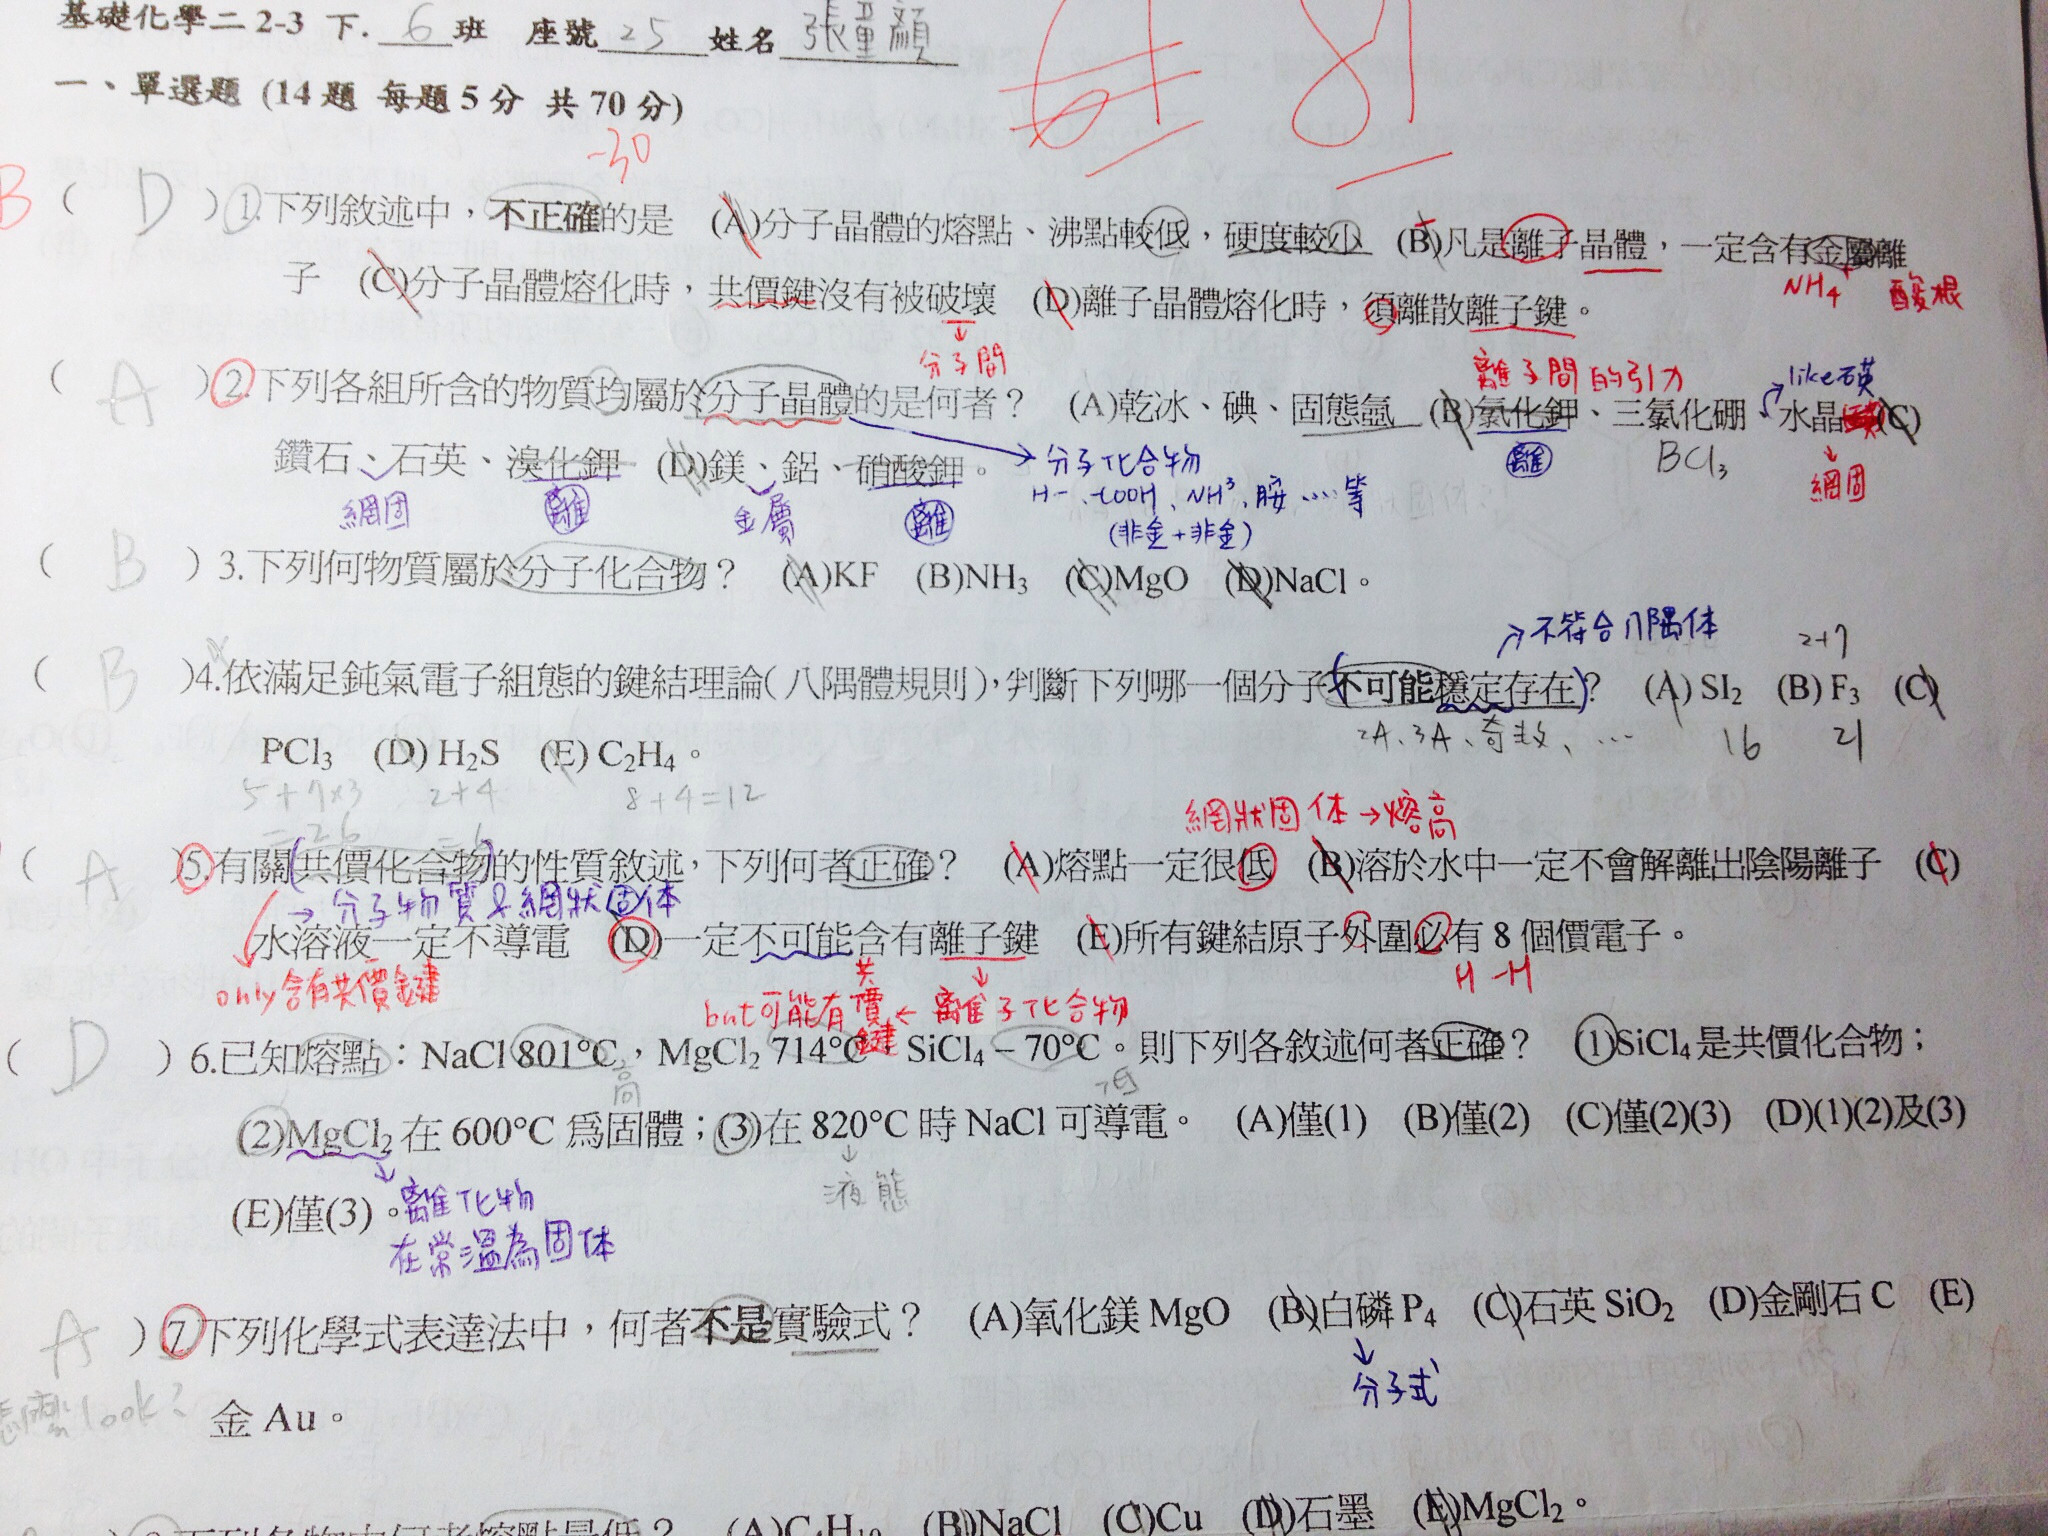 基礎化學二 2-3 下. 6 班 座號 25 姓名 張童顏
61 81
一、單選題 (14 題 每題 5 分 共 70 分)
-30
B ( D ) 1.下列敘述中，不正確的是 (A)分子晶體的熔點、沸點較低，硬度較小 (B)凡是離子晶體，一定含有金屬離
子 (C)分子晶體熔化時，共價鍵沒有被破壞 (D)離子晶體熔化時，須離散離子鍵。
NH4+ 酸根
分子間
離子間的引力
like石英
( A ) 2.下列各組所含的物質均屬於分子晶體的是何者？ (A)乾冰、碘、固態氬 (B)氯化鉀、三氯化硼、水晶 (C)
鑽石、石英、溴化鉀 (D)鎂、鋁、硝酸鉀。
分子化合物
離
BCl3
網固
網固 離 金屬 離
H- 、-COOH、NH3、胺‥‥等
(非金+非金)
( B ) 3.下列何物質屬於分子化合物？ (A)KF (B)NH3 (C)MgO (D)NaCl。
不符合八隅体
2+7
( B )4.依滿足鈍氣電子組態的鍵結理論(八隅體規則)，判斷下列哪一個分子不可能穩定存在？ (A) SI2 (B) F3 (C)
2A、3A、奇數、…
16 21
PCl3 (D) H2S (E) C2H4。
5+7×3 2+4 8+4=12
=26 =6
網狀固体→熔高
( A )5.有關(共價化合物)的性質敘述，下列何者正確？ (A)熔點一定很低 (B)溶於水中一定不會解離出陰陽離子 (C)
→分子物質&網狀固体
水溶液一定不導電 (D)一定不可能含有離子鍵 (E)所有鍵結原子外圍必有 8 個價電子。
only含有共價鍵
but可能有共價鍵←離子化合物
H-H
( D ) 6.已知熔點：NaCl 801°C，MgCl2 714°C SiCl4 – 70°C。則下列各敘述何者正確？ (1)SiCl4 是共價化合物；
高 低
(2)MgCl2 在 600°C 為固體；(3)在 820°C 時 NaCl 可導電。 (A)僅(1) (B)僅(2) (C)僅(2)(3) (D)(1)(2)及(3)
液態
(E)僅(3)。
離化物
在常溫為固体
A ) 7.下列化學式表達法中，何者不是實驗式？ (A)氧化鎂 MgO (B)白磷 P4 (C)石英 SiO2 (D)金剛石 C (E)
分子式
怎麼look？
金 Au。
下列各物中何者熔點最低？ (A)C4H10 (B)NaCl (C)Cu (D)石墨 (E)MgCl2。